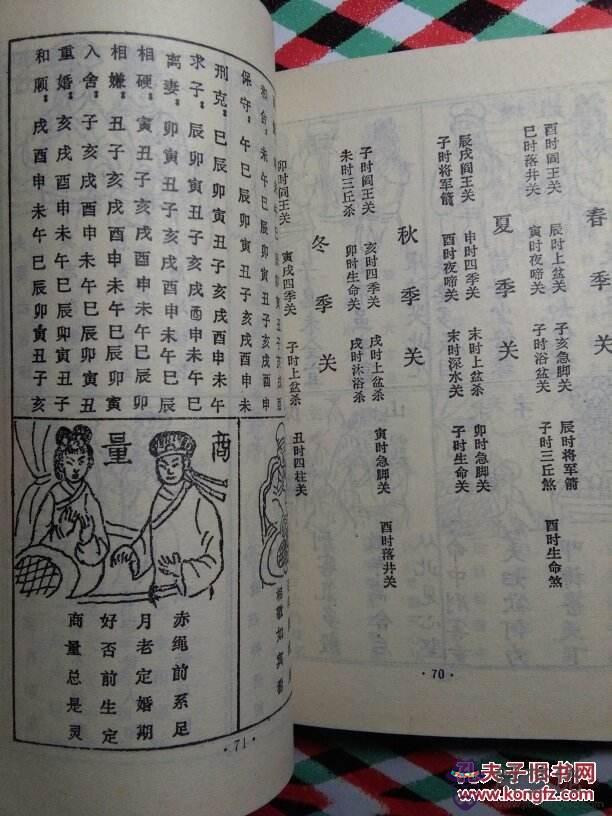 春季关
酉时阎王关 辰时上盆关 子亥急脚关 辰时将军箭 酉时生命煞
巳时落井关 寅时夜啼关 子时浴盆关 子时三丘煞
夏季关
辰戌阎王关 申时四季关 末时上盆关 卯时急脚关
子时将军箭 酉时夜啼关 末时深水关 子时生命关
秋季关
子时阎王关 亥时四季关 戌时上盆关 寅时急脚关 酉时落井关
未时三丘杀 卯时生命关 戌时沐浴杀
冬季关
卯时阎王关 寅戌四季关 子时上盆杀 丑时四柱关
·70·
和合：未午巳辰卯寅丑子亥戌酉申
保守：午巳辰卯寅丑子亥戌酉申未
刑克：巳辰卯寅丑子亥戌酉申未午
求子：辰卯寅丑子亥戌酉申未午巳
离妻：卯寅丑子亥戌酉申未午巳辰
相硬：寅丑子亥戌酉申未午巳辰卯
相嫌：丑子亥戌酉申未午巳辰卯寅
入舍：子亥戌酉申未午巳辰卯寅丑
重婚：亥戌酉申未午巳辰卯寅丑子
和顺：戌酉申未午巳辰卯寅丑子亥
商量
赤绳前系足
月老定婚期
好否前生定
商量总是灵
·71·
孔夫子旧书网
www.kongfz.com